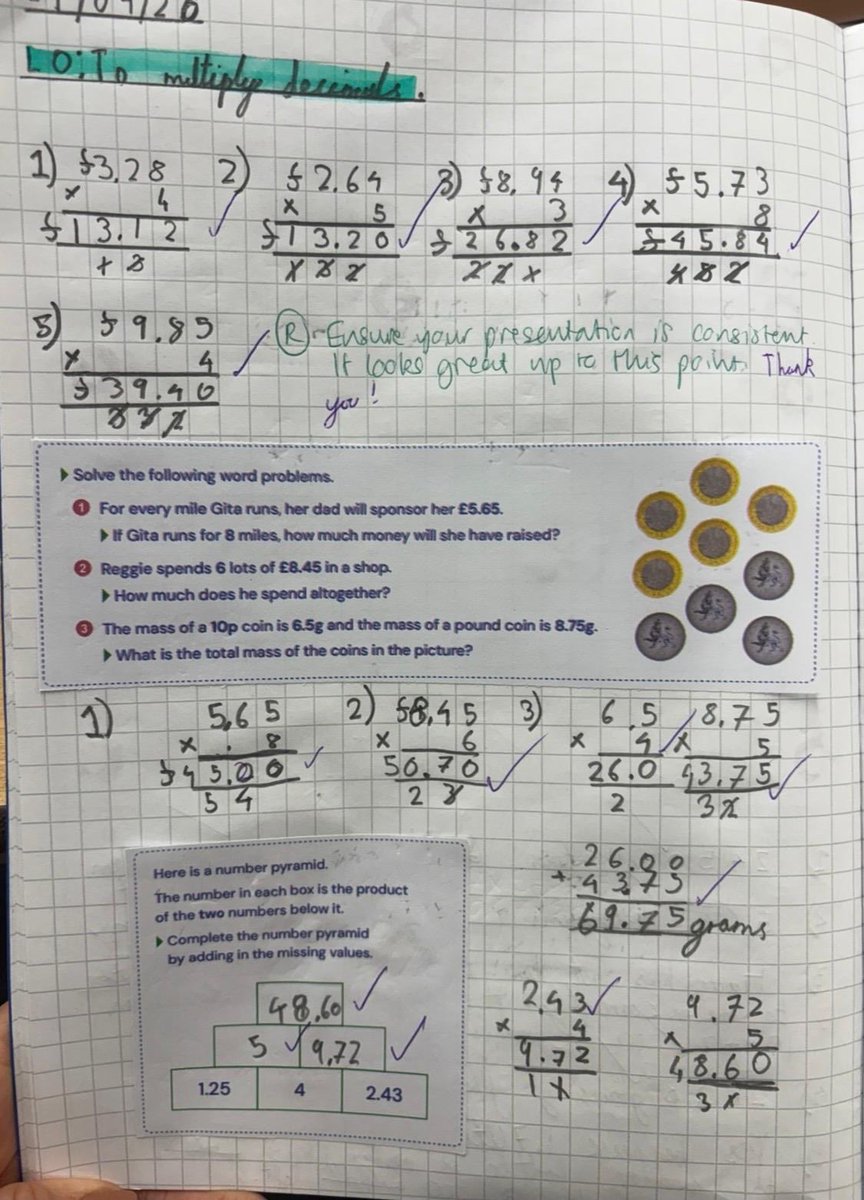 LO: To multiply decimals.
1) £3.28 2) £2.64 3) £8.94 4) £5.73
× 4 × 5 × 3 × 8
£13.12 £13.20 £26.82 £45.84
1 3 1 3 2 2 2 1 4 5 2
5) £9.85
× 4
£39.40
3 3 2
(R) - Ensure your presentation is consistent.
It looks great up to this point. Thank
you!
Solve the following word problems.
1 For every mile Gita runs, her dad will sponsor her £5.65.
If Gita runs for 8 miles, how much money will she have raised?
2 Reggie spends 6 lots of £8.45 in a shop.
How much does he spend altogether?
3 The mass of a 10p coin is 6.5g and the mass of a pound coin is 8.75g.
What is the total mass of the coins in the picture?
1) 5.65 2) £8.45 3) 6.5 8.75
× . 8 × 6 × 4 × 5
£45.20 50.70 26.0 43.75
5 4 2 3 2 3 2
26.00
+ 43.75
69.75 grams
Here is a number pyramid.
The number in each box is the product
of the two numbers below it.
Complete the number pyramid
by adding in the missing values.
48.60
5 9.72
1.25 4 2.43
2.43 9.72
× 4 × 5
9.72 48.60
1 1 3 1